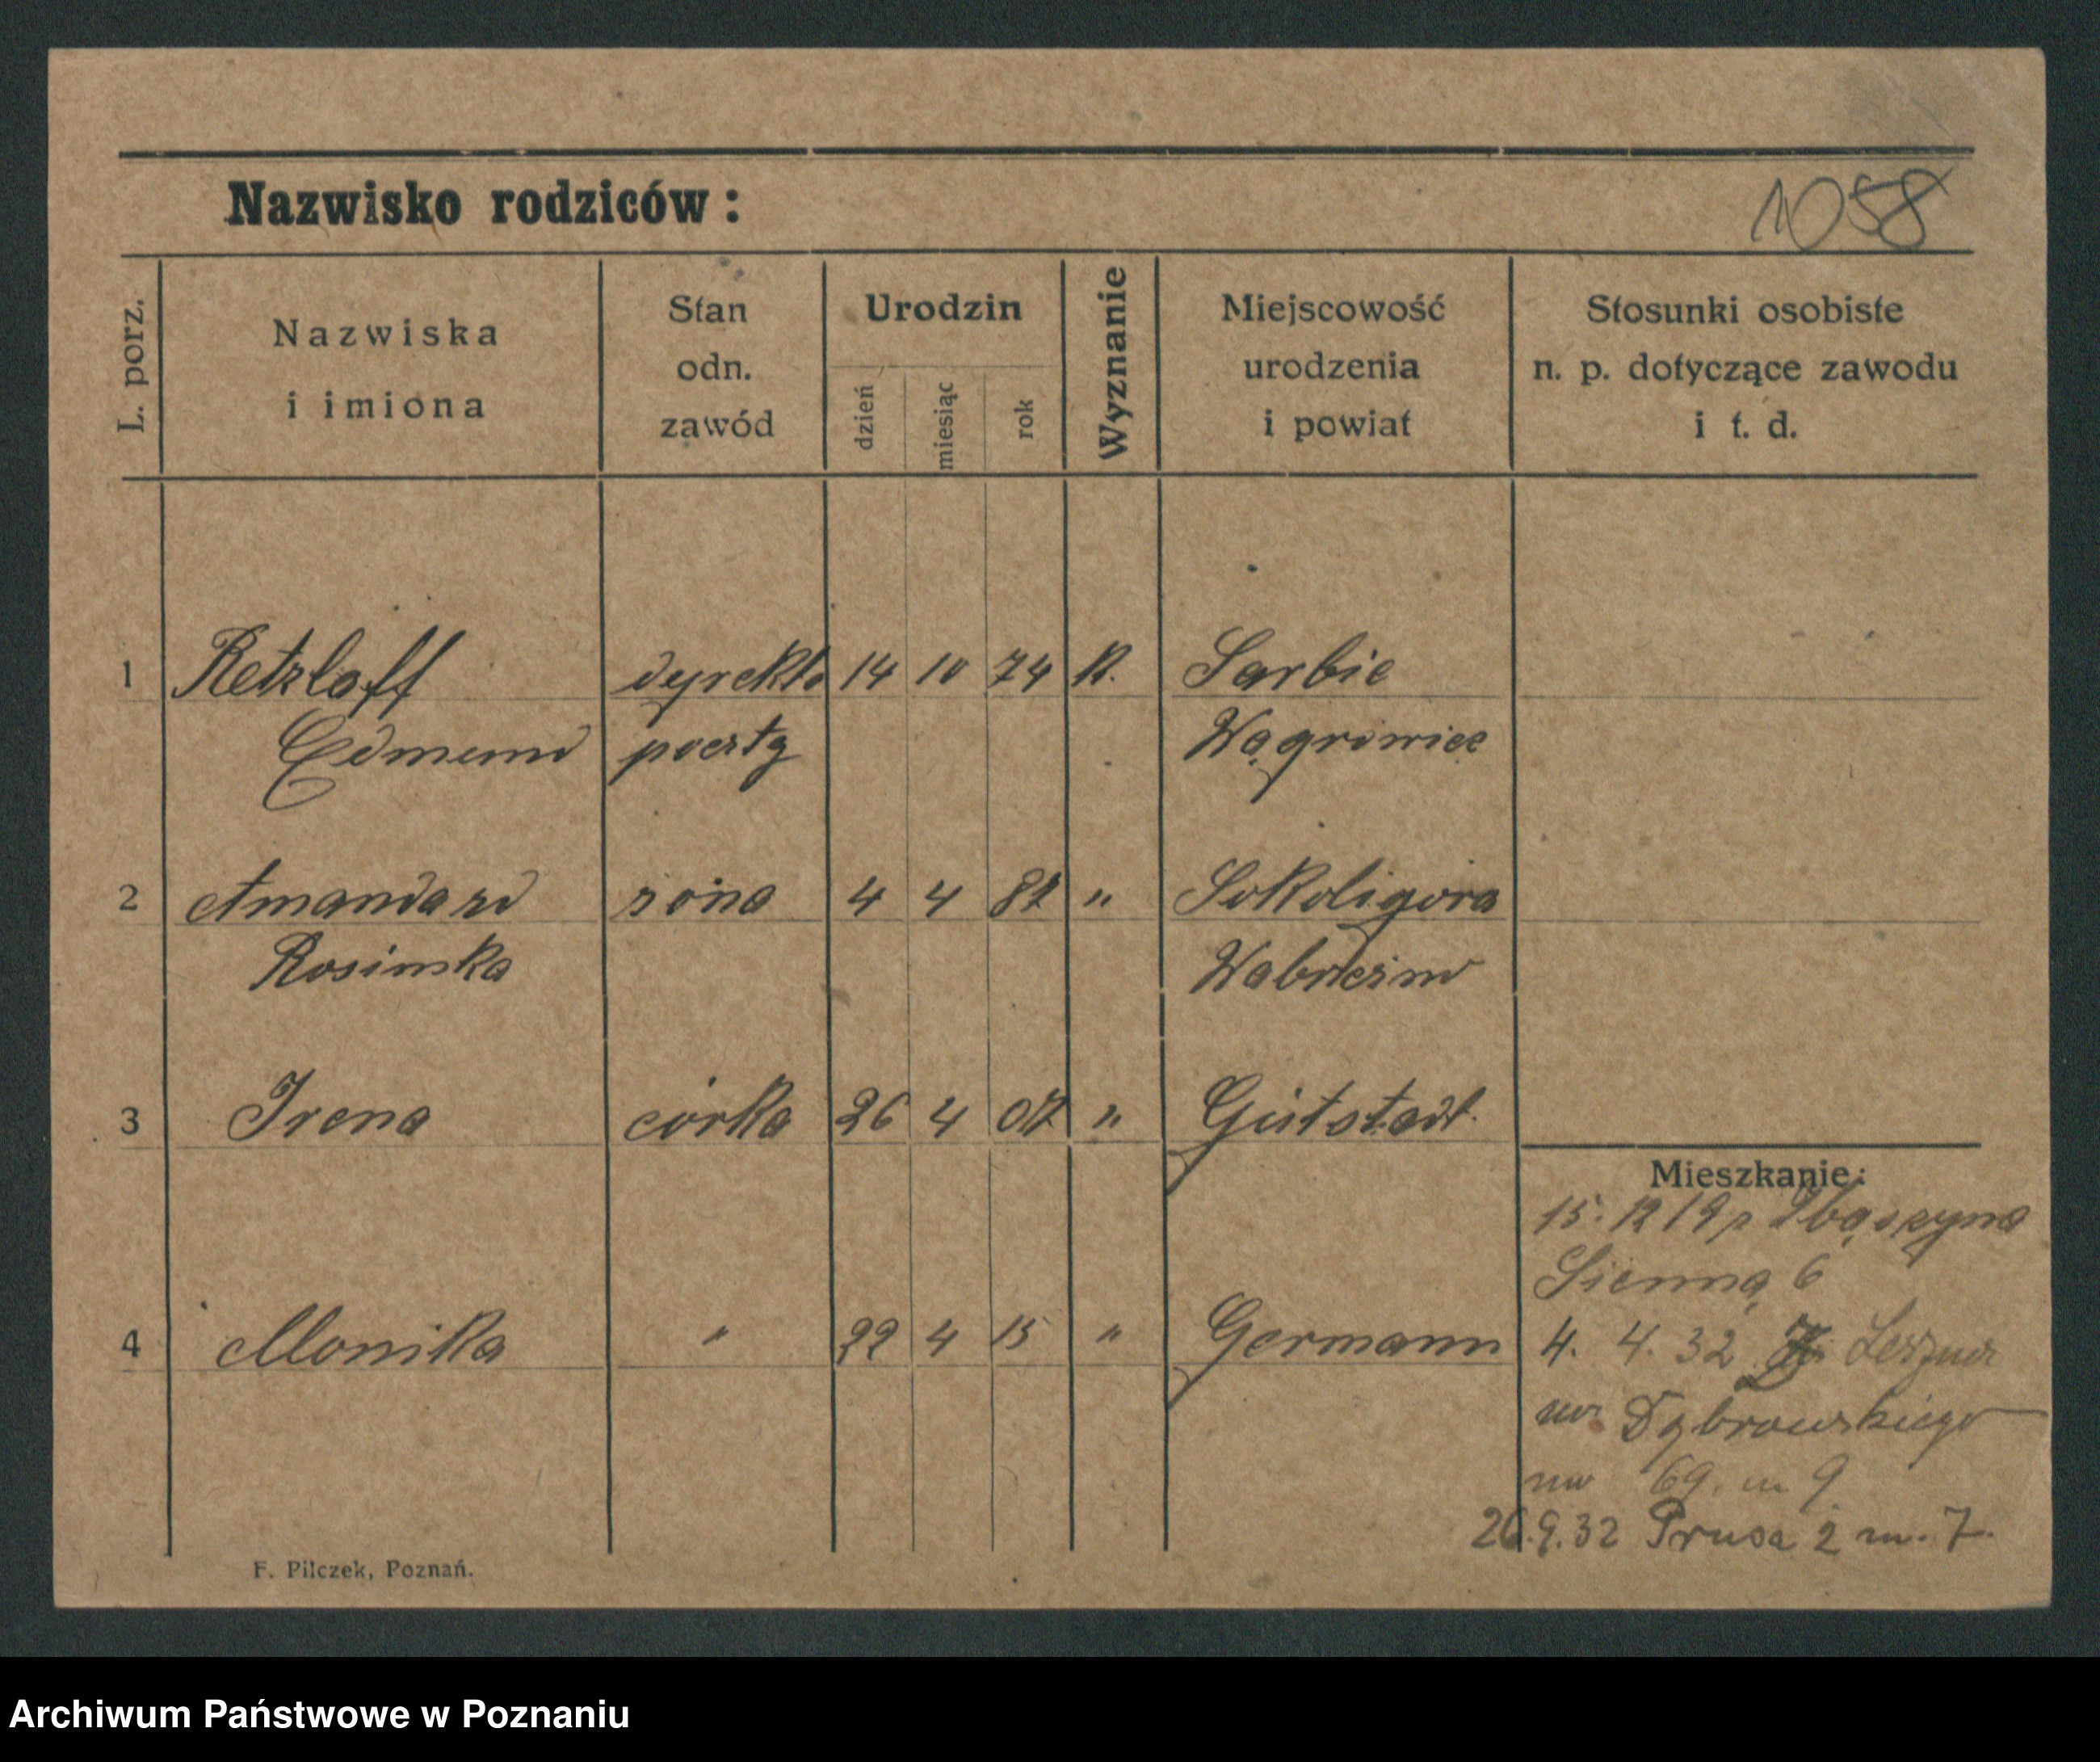 Nazwisko rodziców:
1058
L. porz.
Nazwiska
i imiona
Stan
odn.
zawód
Urodzin
dzień
miesiąc
rok
Wyznanie
Miejscowość
urodzenia
i powiat
Stosunki osobiste
n. p. dotyczące zawodu
i t. d.
1 Retzlaff dyrekto 14 10 74 K. Sarbie
Edmund poczty Wągrowiec
2 Amanda zd żona 4 4 82 " Sokoligora
Rosinska Wabrzezno
3 Irena córka 26 4 07 " Gutstadt.
Mieszkanie:
15. 12 19 z Zbąszyna
Sienna 6
4 Monika " 22 4 15 " Germann
4. 4. 32 Leszna
Dąbrowskiego
69. m 9
26.9.32 Prusa 2 m. 7.
F. Pilczek, Poznań.
Archiwum Państwowe w Poznaniu